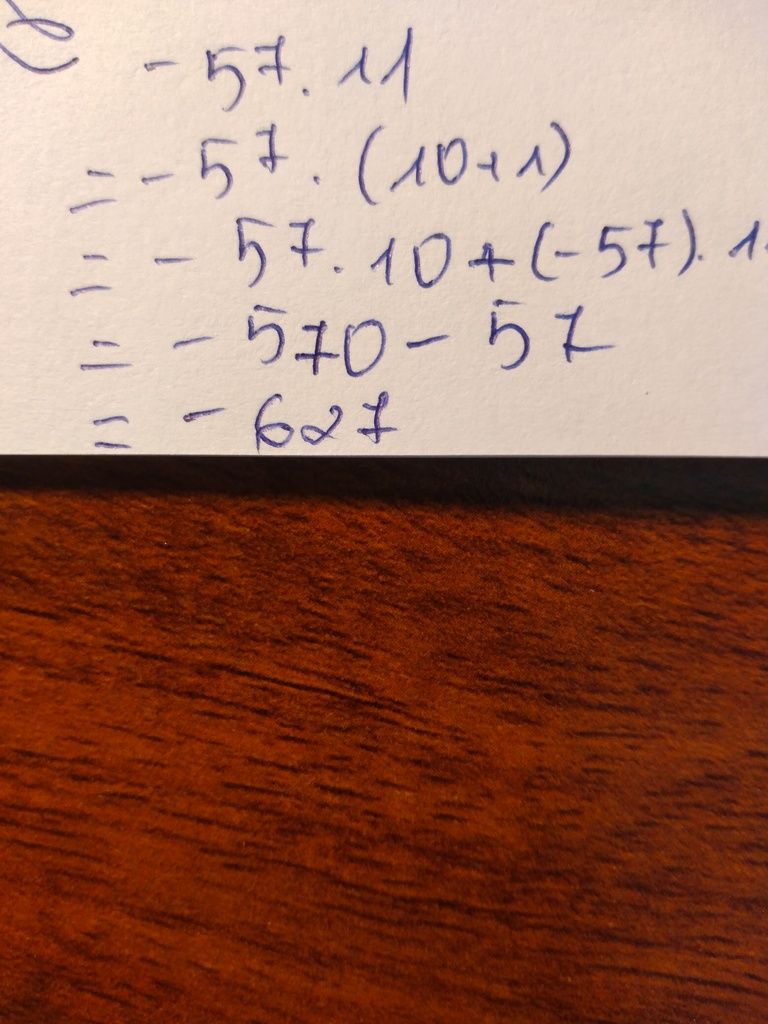 - 57. 11
= - 57. (10+1)
= - 57. 10 + (-57). 1
= - 570 - 57
= - 627